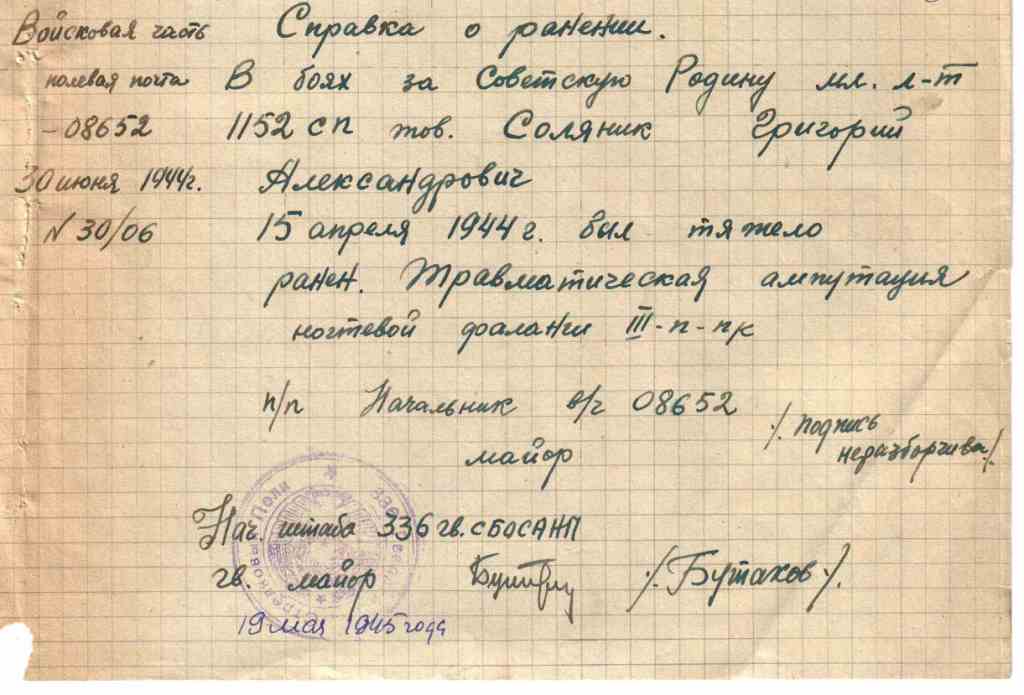 Войсковая часть
полевая почта
-08652
30 июня 1944г.
№ 30/06
Справка о ранении.
В боях за Советскую Родину мл. л-т
1152 сп тов. Соляник Григорий
Александрович
15 апреля 1944 г. был тяжело
ранен. Травматическая ампутация
ногтевой фаланги III-п-пк
п/п Начальник в/ч 08652
майор
/ подпись
неразборчива /.
Нач. штаба 336 гв. СБОСАНП
гв. майор /. Бутаков /.
19 мая 1945 года